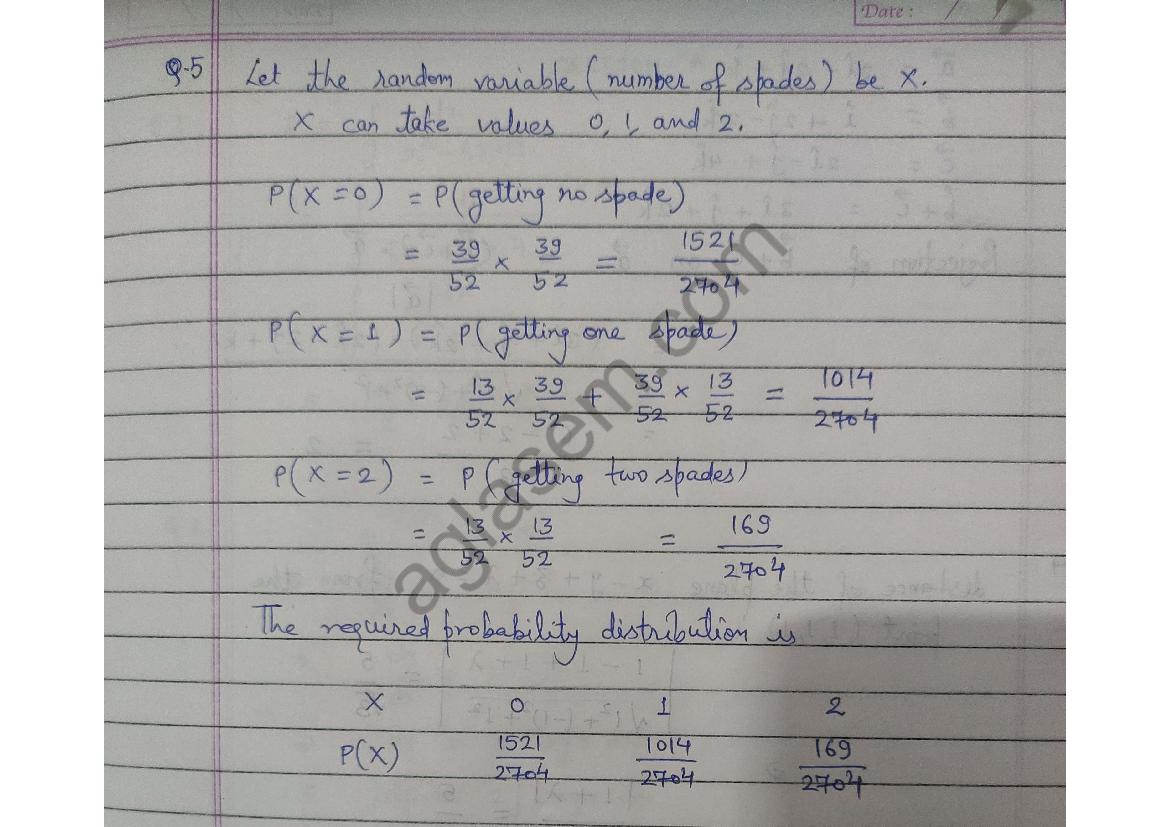 Date : / /
Q-5 Let the random variable (number of spades) be X.
X can take values 0, 1, and 2.
P(X=0) = P(getting no spade)
= 39/52 × 39/52 = 1521/2704
P(X=1) = P(getting one spade)
= 13/52 × 39/52 + 39/52 × 13/52 = 1014/2704
P(X=2) = P(getting two spades)
= 13/52 × 13/52 = 169/2704
The required probability distribution is
X 0 1 2
P(X) 1521/2704 1014/2704 169/2704
aglasem.com